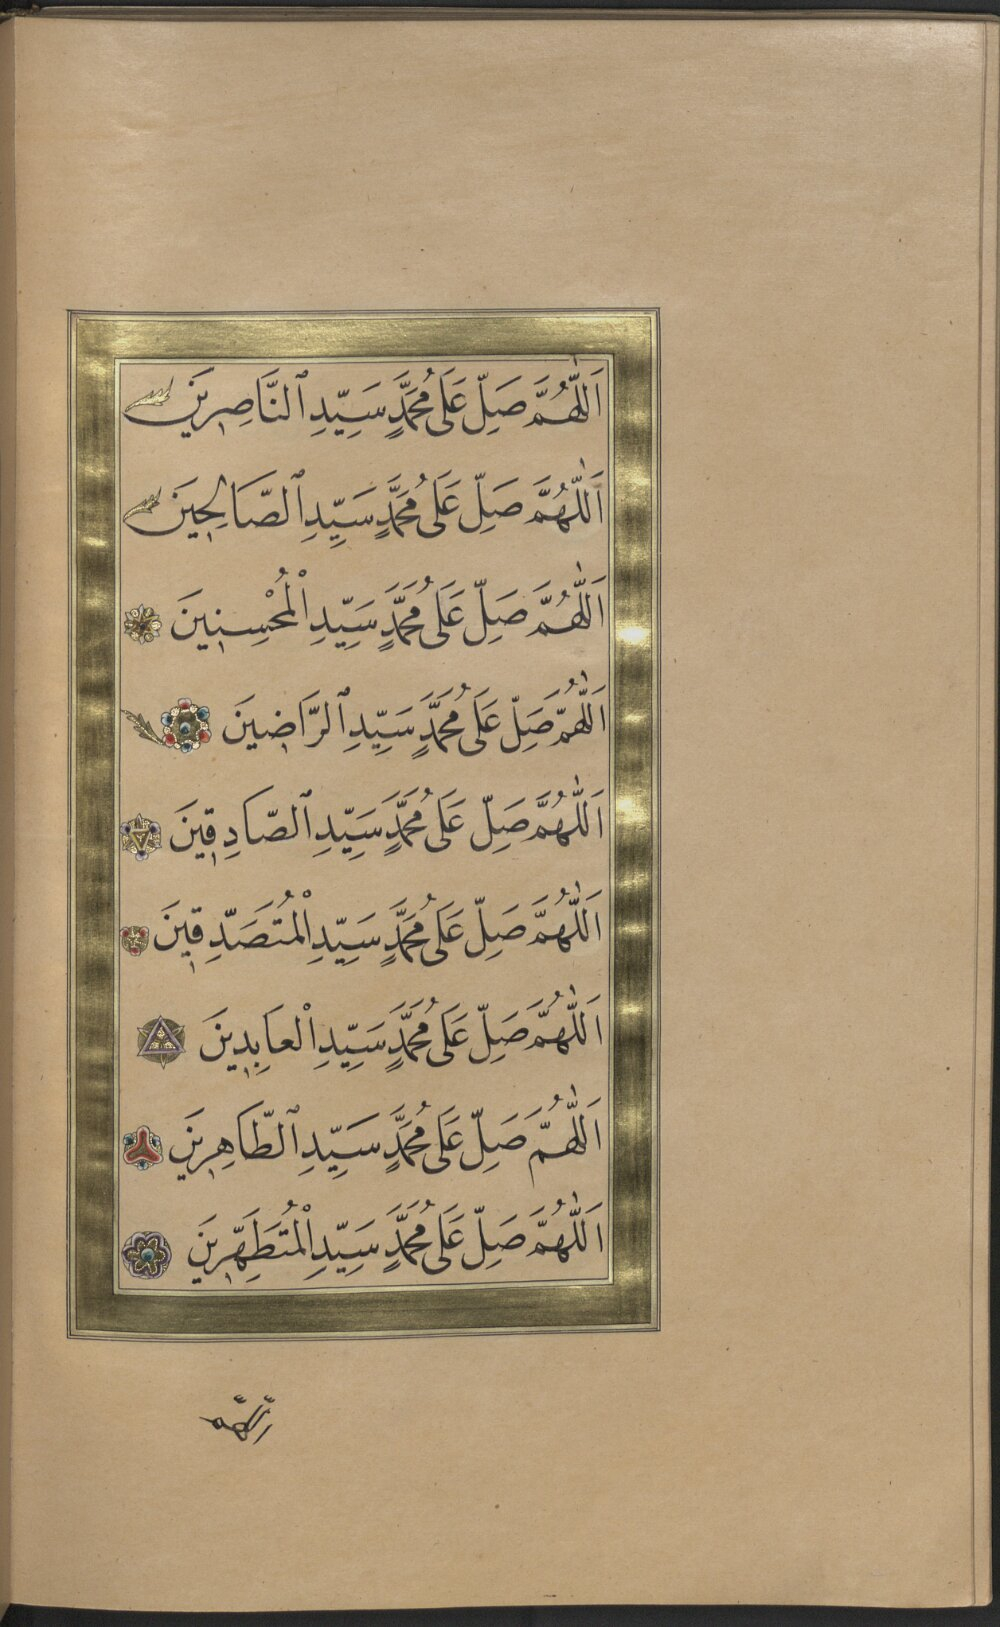 اَللّٰهُمَّ صَلِّ عَلَى مُحَمَّدٍ سَيِّدِ ٱلنَّاصِرِينَ
اَللّٰهُمَّ صَلِّ عَلَى مُحَمَّدٍ سَيِّدِ ٱلصَّالِحِينَ
اَللّٰهُمَّ صَلِّ عَلَى مُحَمَّدٍ سَيِّدِ الْمُحْسِنِينَ
اَللّٰهُمَّ صَلِّ عَلَى مُحَمَّدٍ سَيِّدِ ٱلرَّاضِينَ
اَللّٰهُمَّ صَلِّ عَلَى مُحَمَّدٍ سَيِّدِ ٱلصَّادِقِينَ
اَللّٰهُمَّ صَلِّ عَلَى مُحَمَّدٍ سَيِّدِ الْمُتَصَدِّقِينَ
اَللّٰهُمَّ صَلِّ عَلَى مُحَمَّدٍ سَيِّدِ الْعَابِدِينَ
اَللّٰهُمَّ صَلِّ عَلَى مُحَمَّدٍ سَيِّدِ ٱلطَّاهِرِينَ
اَللّٰهُمَّ صَلِّ عَلَى مُحَمَّدٍ سَيِّدِ الْمُتَطَهِّرِينَ